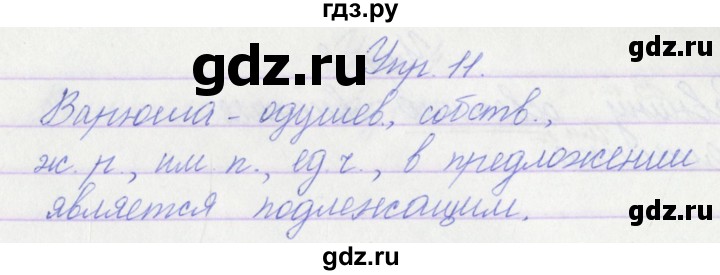 гдз.ру
gdz.ru
gdz.ru
Упр. 11.
Варюша - одушев, собств.,
ж. р., им. п., ед.ч., в предложении
gdz.ru
является подлежащим.
gdz.ru
gdz.ru